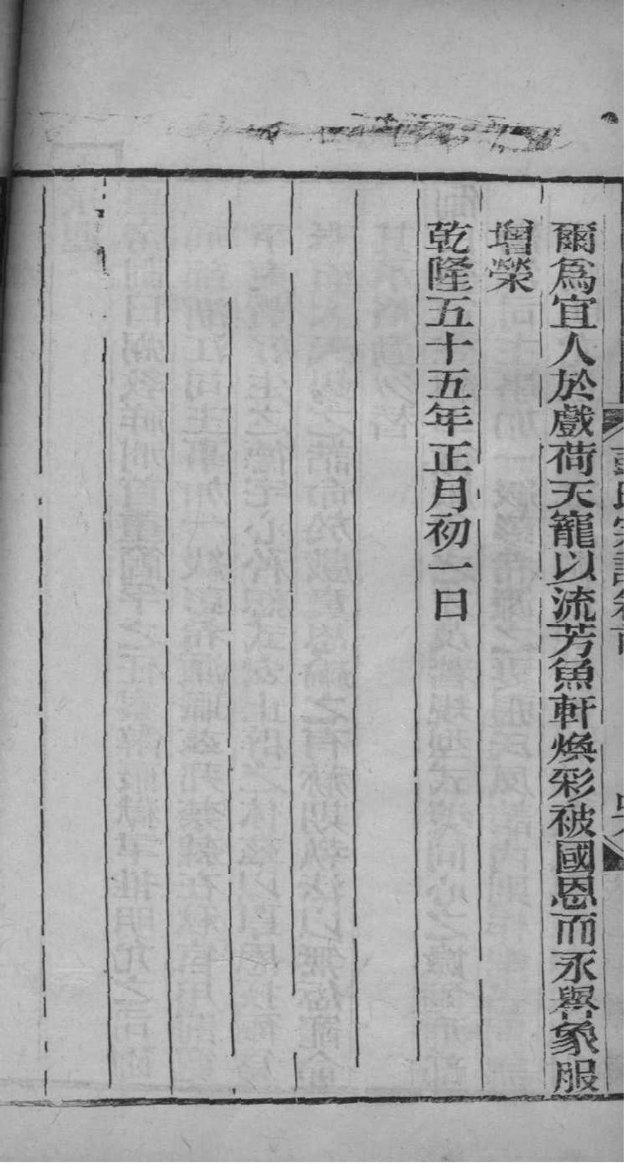 爾爲宜人於戲荷天寵以流芳魚軒煥彩被國恩而永譽象服
增榮
乾隆五十五年正月初一日